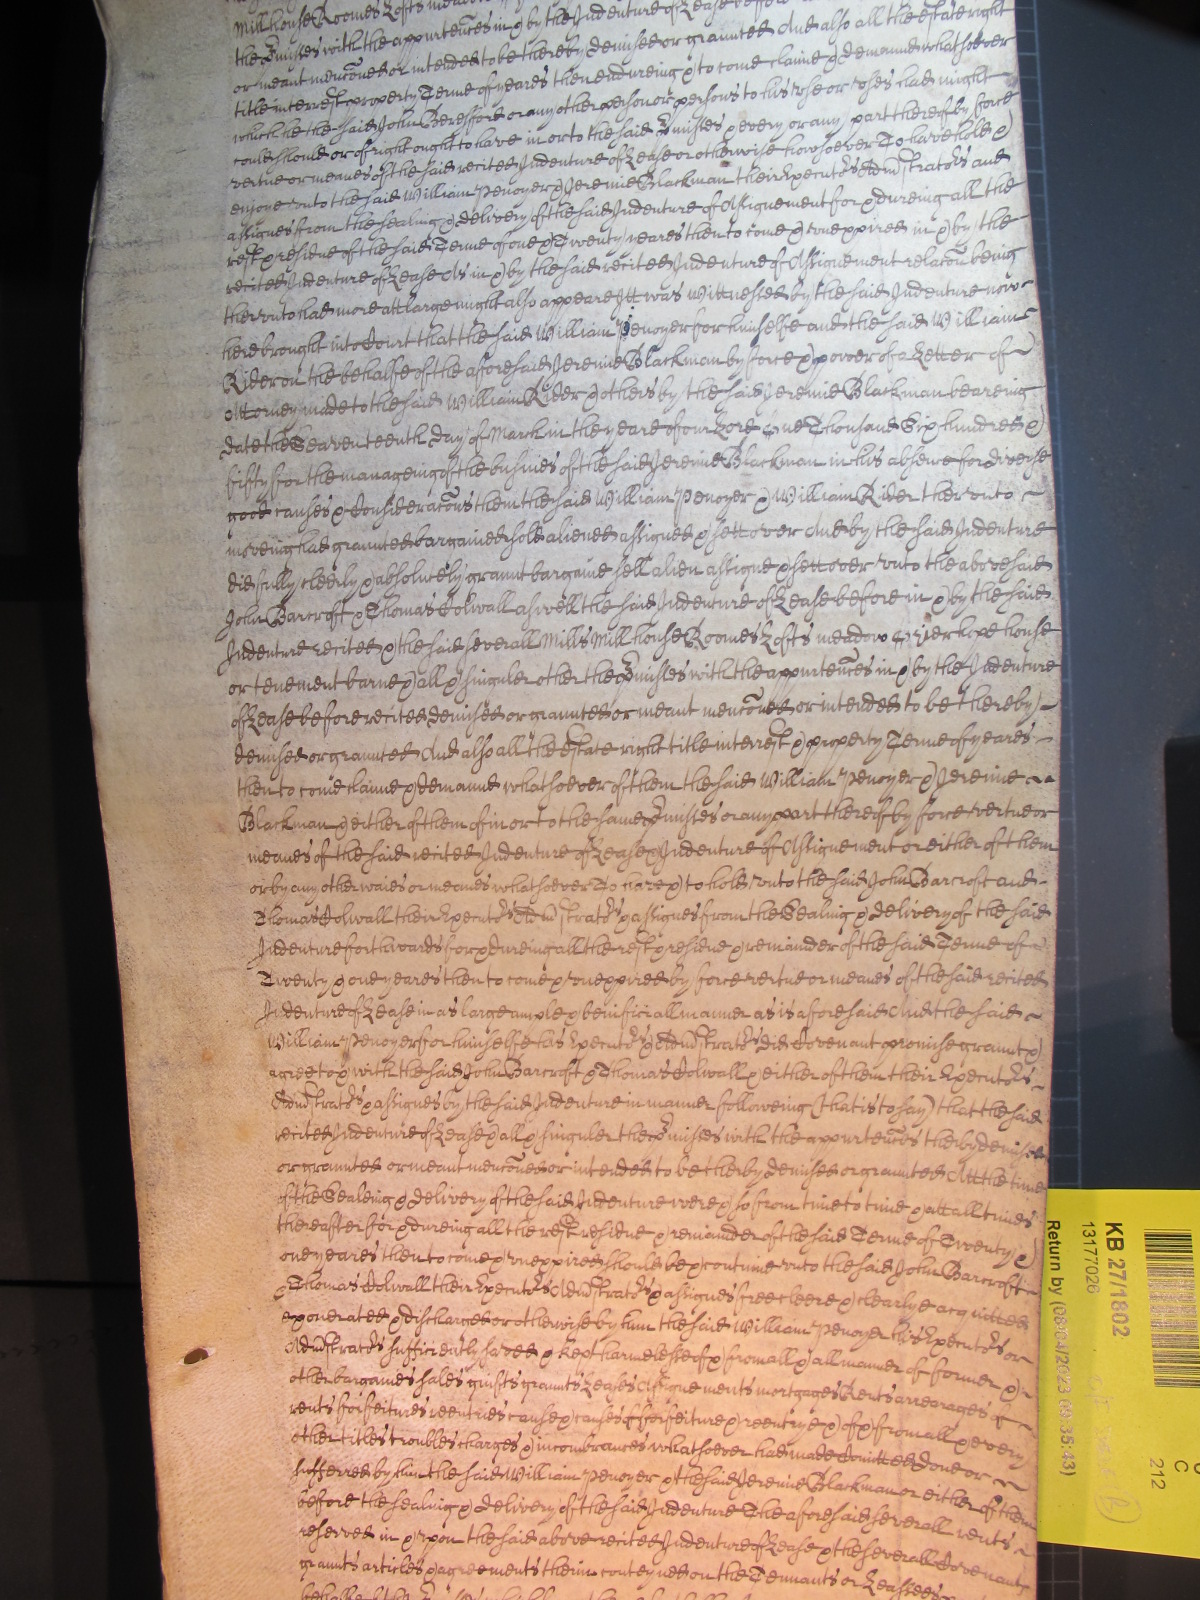 Millhouse Roomes Lofts meadow
the p̃misses with the appurteñces in & by the Indenture of Lease before
or meant menc̃oned or intended to be thereby demised or graunted And also all the Estate right
title interrest property Terme of yeares then endureing & to come claime & demaund whatsoever
which he the said John Beresford or any other person or persons to his vse or vses had might
could should or of right ought to have in or to the said p̃misses & every or any part thereof by force
vertue or meanes of the said recited Indenture of Lease or otherwise howsoever To have hold &
enjoye vnto the said William Penoyer & Jeremie Blackman their Executors Adm̃strators and
assignes from the sealing & delivery of the said Indenture of Assignement for & dureing all the
rest & residue of the said Terme of one & Twenty yeares then to come & vnexpired in & by the
recited Indenture of Lease As in & by the said recited Indenture of Assignement relac̃on being
thervnto had more att large might also appeare Itt was Wittnessed by the said Indenture now
here brought into Court that the said William Penoyer for himselfe and the said William
Rider on the behalfe of the aforesaid Jeremie Blackman by force & power of a Letter of
Attorney made to the said William Rider & others by the said Jeremie Blackman beareing
date the Seaventeenth day of March in the yeare of our Lord One Thousand Six hundred &
fifty for the manageing of the busines of the said Jeremie Blackman in his absence for diverse
good causes & Considerac̃ons them the said William Penoyer & William Rider thervnto
moveing had graunted bargained sold aliened assigned & sett over And by the said Indenture
did fully cleerly & absolutely graunt bargaine sell alien assigne & sett over vnto the abovesaid
John Barcroft & Thomas Colwall aswell the said Indenture of Lease before in & by the said
Indenture recited & the said severall Mills Millhouse Roomes Lofts meadow house
or tenement barne & all & singuler other the p̃misses with the appurteñces in & by the Indenture
of Lease before recited demised or graunted or meant menc̃oned or intended to be thereby
demised or graunted And also all the Estate right title interrest & property Terme of yeares
then to come claime & demaund whatsoever of them the said William Penoyer & Jeremie
Blackman & either of them of in or to the same p̃misses or any part thereof by force vertue or
meanes of the said recited Indenture of Lease & Indenture of Assignement or either of them
or by any other waies or meanes whatsoever To have & to hold vnto the said John Barcroft and
Thomas Colwall their Executors Adm̃strators & assignes from the Sealing & delivery of the said
Indenture forthwards for & dureing all the rest & residue & remainder of the said Terme of
Twenty & one yeares then to come & vnexpired by force vertue or meanes of the said recited
Indenture of Lease in as large ample & benificiall manner as is aforesaid And the said
William Penoyer for himselfe his Executors & Adm̃strators did Covenant promise graunt &
agree to & with the said John Barcroft & Thomas Colwall & either of them their Executors
Adm̃strators & assignes by the said Indenture in manner following (that is to say) that the said
recited Indenture of Lease & all & singuler the p̃misses with the appurteñces therby demised
or graunted or meant menc̃oned or intended to be therby demised or graunted Att the time
of the Sealeing & delivery of the said Indenture were & so from time to time & att all times
thereafter for & dureing all the rest residue & remainder of the said Terme of Twenty &
one yeares then to come & vnexpired should be & continue vnto the said John Barcroft
& Thomas Colwall their Executors Adm̃strators & assignes free cleere & clearlye acquitted
exonerated & discharged or otherwise by him the said William Penoyer his Executors or
Adm̃strators sufficiently saved & kept harmelesse of & from all & all manner of former &
other bargaines sales guifts graunts Leases Assignements mortgages Rents arrearages of
rents forfeitures reentries cause & causes of forfeiture & reentrye & of & from all & every
other titles troubles charges & incombrances whatsoever had made com̃itted done or
suffered by him the said William Penoyer & the said Jeremie Blackman or either of them
before the sealing & delivery of the said Indenture The aforesaid severall rents
reserved in & vpon the said above recited Indenture of Lease & the severall Covenants
graunts articles & agreements therin conteyned on the Tennants or Leassees
KB 27/1802
13177026
Return by (08/04/2023 09:35:43)
C
212